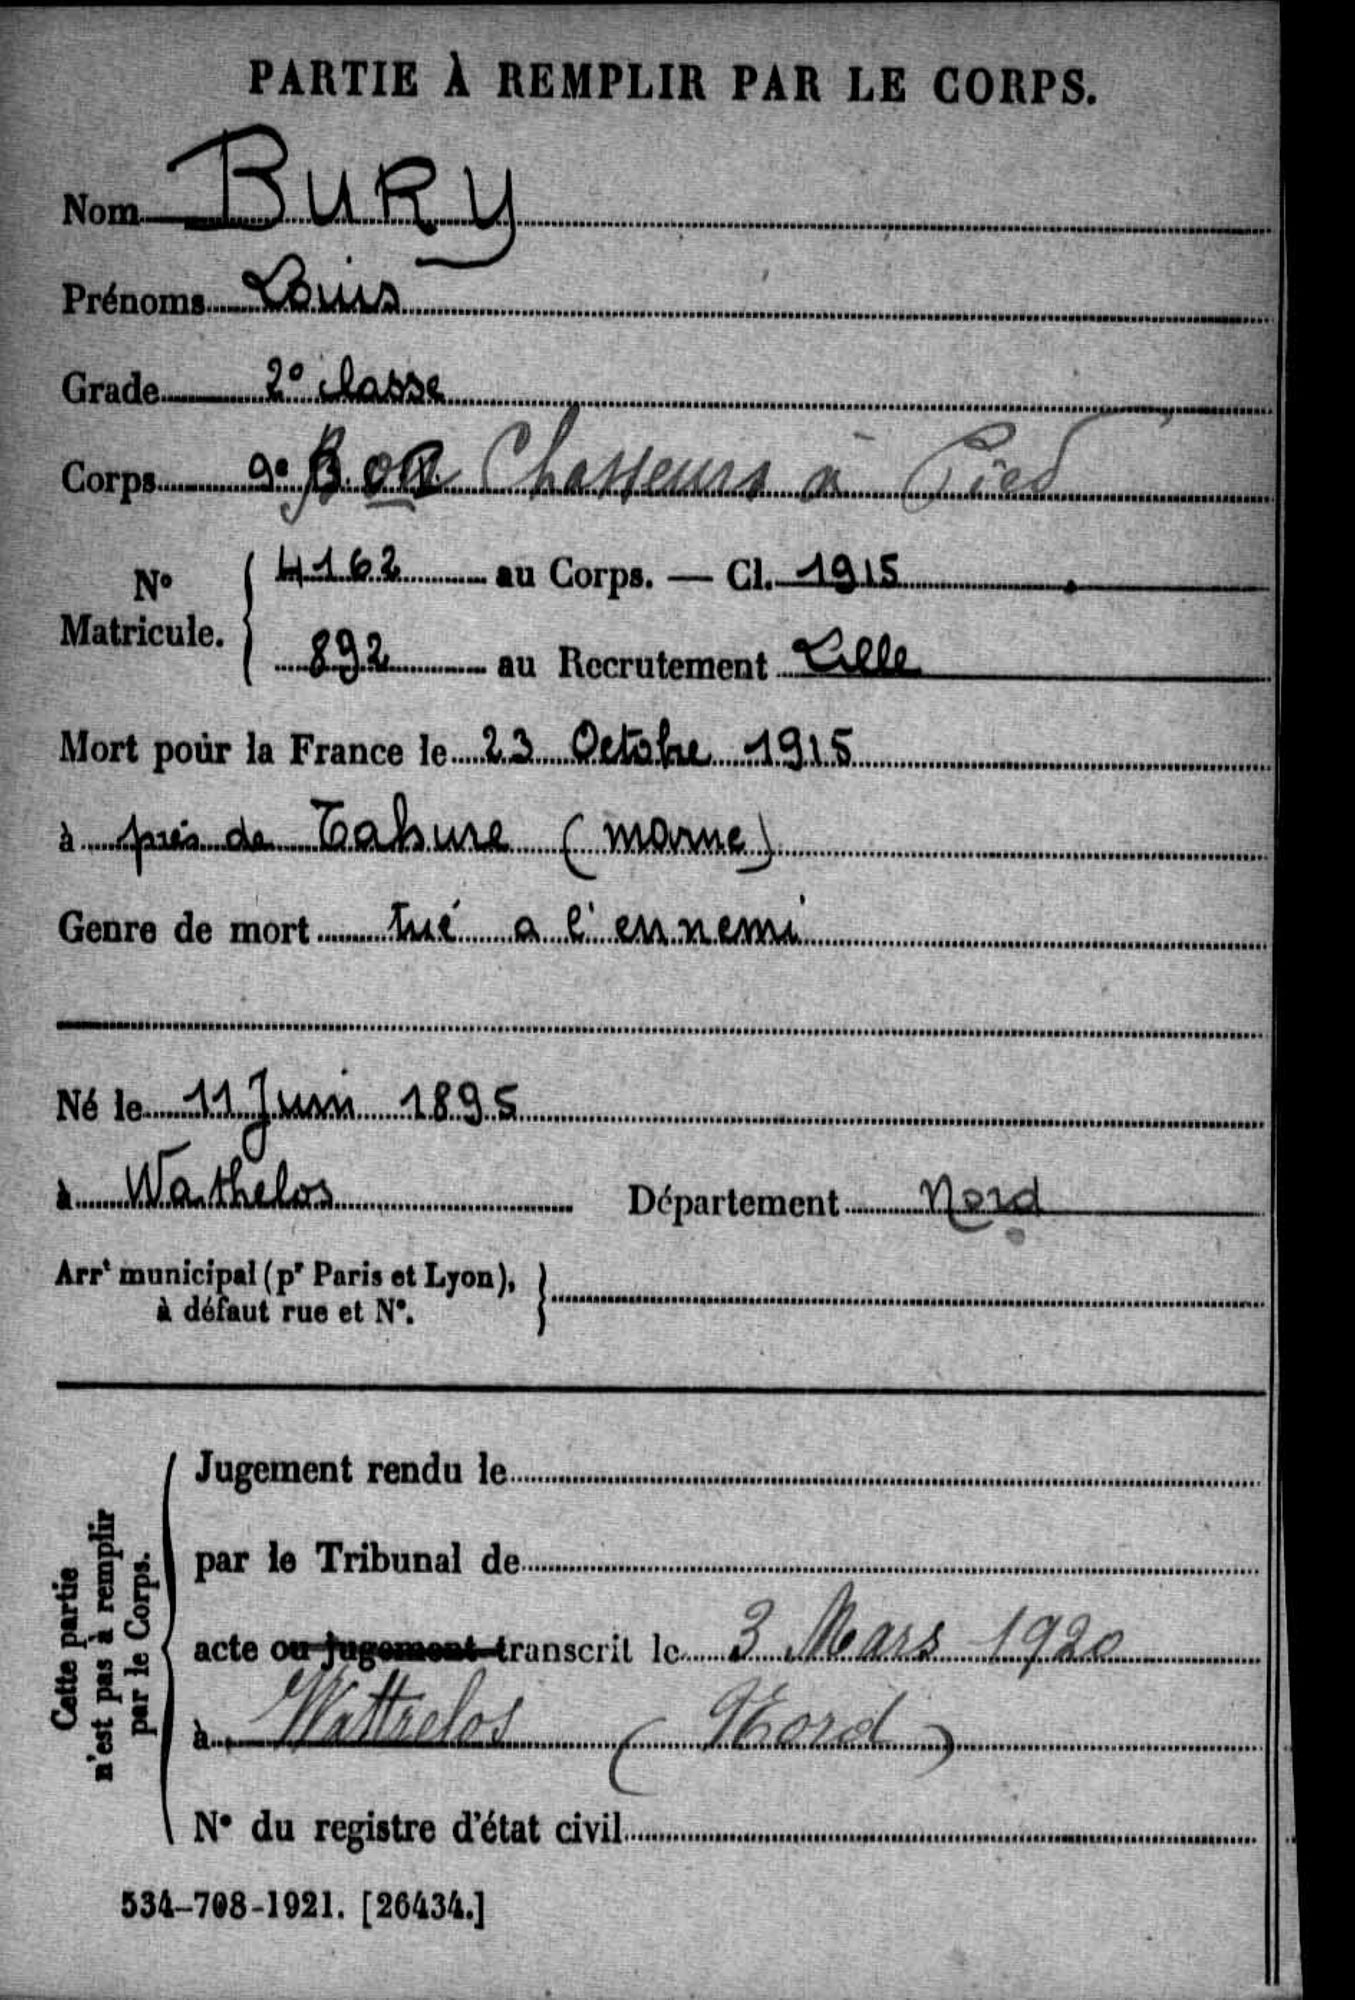 PARTIE À REMPLIR PAR LE CORPS.
Nom BURY
Prénoms Louis
Grade 2e classe
Corps 9e Bon Chasseurs à Pied
N° Matricule. { 4162 au Corps. — Cl. 1915
892 au Recrutement Lille
Mort pour la France le 23 Octobre 1915
à près de Tahure (Marne)
Genre de mort tué a l'ennemi
Né le 11 Juin 1895
à Wathelos Département Nord
Arrt municipal (pr Paris et Lyon),
à défaut rue et N°.
Cette partie
n'est pas à remplir
par le Corps.
Jugement rendu le
par le Tribunal de
acte ou jugement transcrit le 3 Mars 1920
à Wattrelos (Nord)
N° du registre d'état civil
534-708-1921. [26434.]